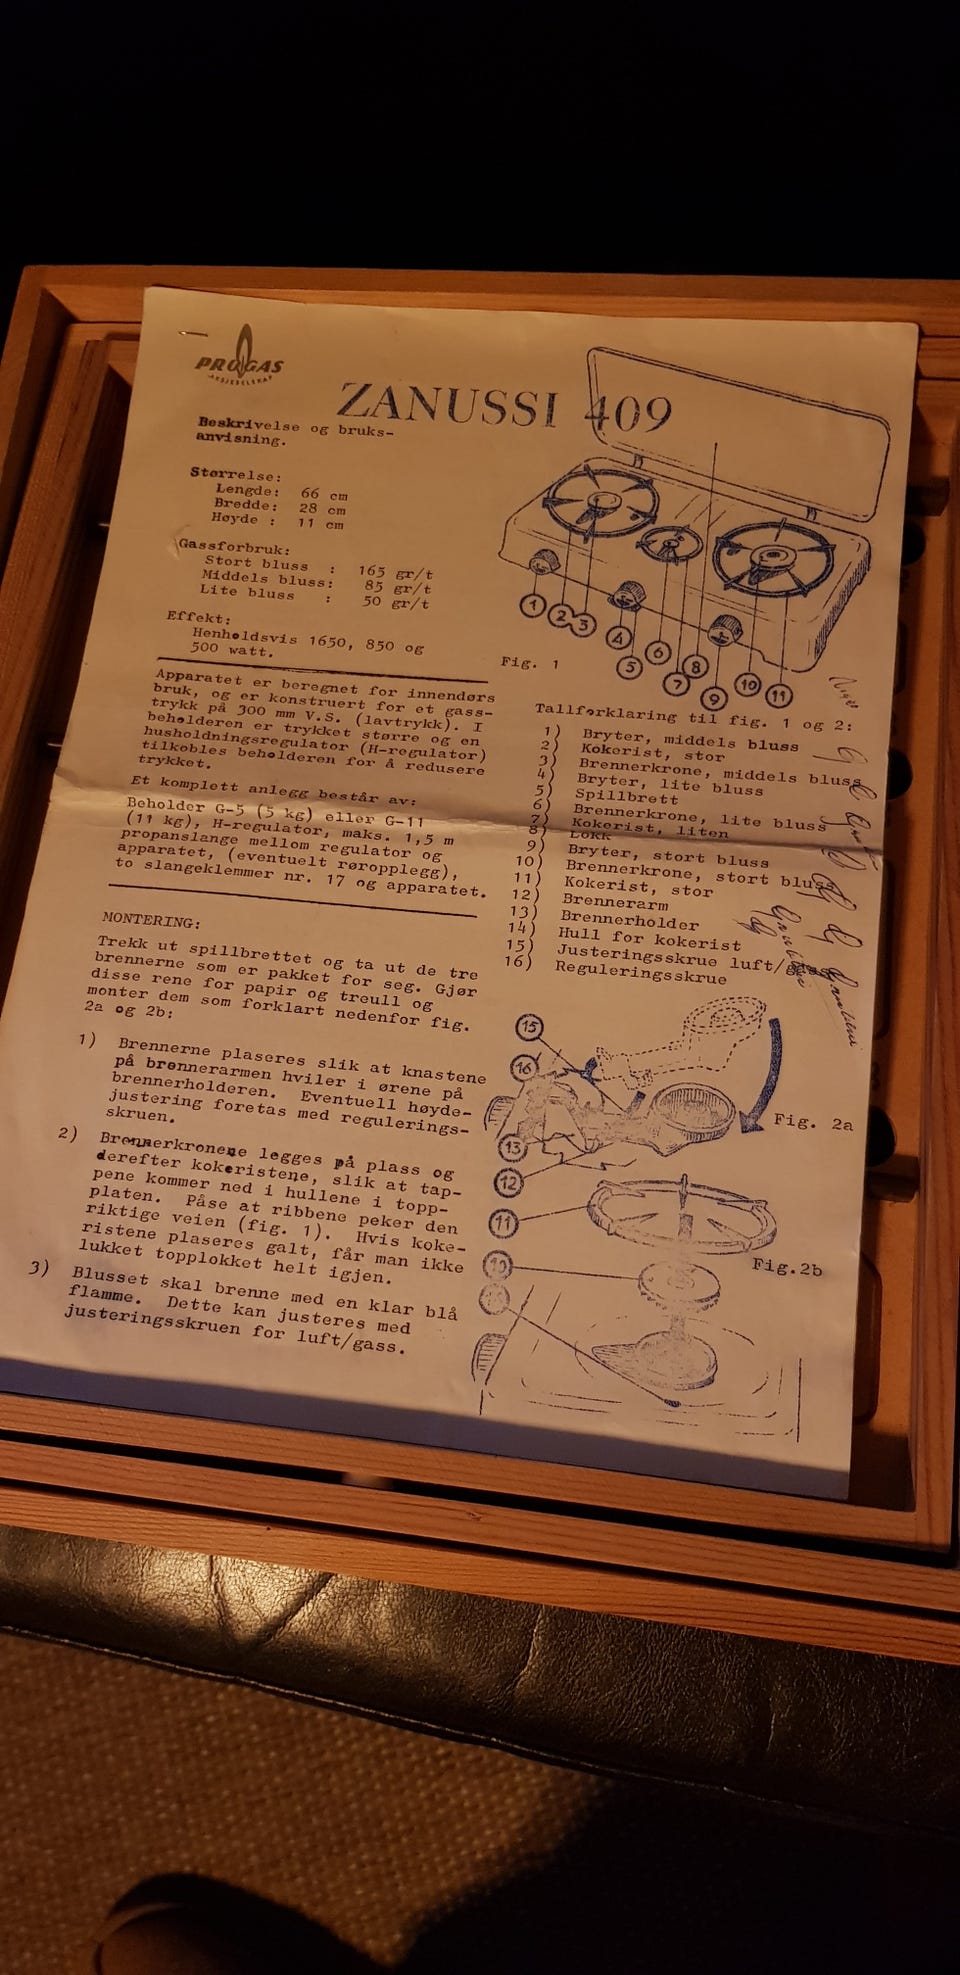 PROGAS
AKSJESELSKAP
ZANUSSI 409
Beskrivelse og bruks-
anvisning.
Størrelse:
Lengde: 66 cm
Bredde: 28 cm
Høyde : 11 cm
Gassforbruk:
Stort bluss : 165 gr/t
Middels bluss: 85 gr/t
Lite bluss : 50 gr/t
Effekt:
Henholdsvis 1650, 850 og
500 watt.
Apparatet er beregnet for innendørs
bruk, og er konstruert for et gass-
trykk på 300 mm V.S. (lavtrykk). I
beholderen er trykket større og en
husholdningsregulator (H-regulator)
tilkobles beholderen for å redusere
trykket.
Et komplett anlegg består av:
Beholder G-5 (5 kg) eller G-11
(11 kg), H-regulator, maks. 1,5 m
propanslange mellom regulator og
apparatet, (eventuelt røropplegg),
to slangeklemmer nr. 17 og apparatet.
MONTERING:
Trekk ut spillbrettet og ta ut de tre
brennerne som er pakket for seg. Gjør
disse rene for papir og treull og
monter dem som forklart nedenfor fig.
2a og 2b:
1) Brennerne plaseres slik at knastene
på brennerarmen hviler i ørene på
brennerholderen. Eventuell høyde-
justering foretas med regulerings-
skruen.
2) Brennerkronene legges på plass og
derefter kokeristene, slik at tap-
pene kommer ned i hullene i topp-
platen. Påse at ribbene peker den
riktige veien (fig. 1). Hvis koke-
ristene plaseres galt, får man ikke
lukket topplokket helt igjen.
3) Blusset skal brenne med en klar blå
flamme. Dette kan justeres med
justeringsskruen for luft/gass.
1 2 3 4 5 6 7 8 9 10 11
Fig. 1
Tallforklaring til fig. 1 og 2:
1) Bryter, middels bluss
2) Kokerist, stor
3) Brennerkrone, middels bluss
4) Bryter, lite bluss
5) Spillbrett
6) Brennerkrone, lite bluss
7) Kokerist, liten
8) Lokk
9) Bryter, stort bluss
10) Brennerkrone, stort bluss
11) Kokerist, stor
12) Brennerarm
13) Brennerholder
14) Hull for kokerist
15) Justeringsskrue luft/gass
16) Reguleringsskrue
15
16
13
12
Fig. 2a
11
10
Fig.2b